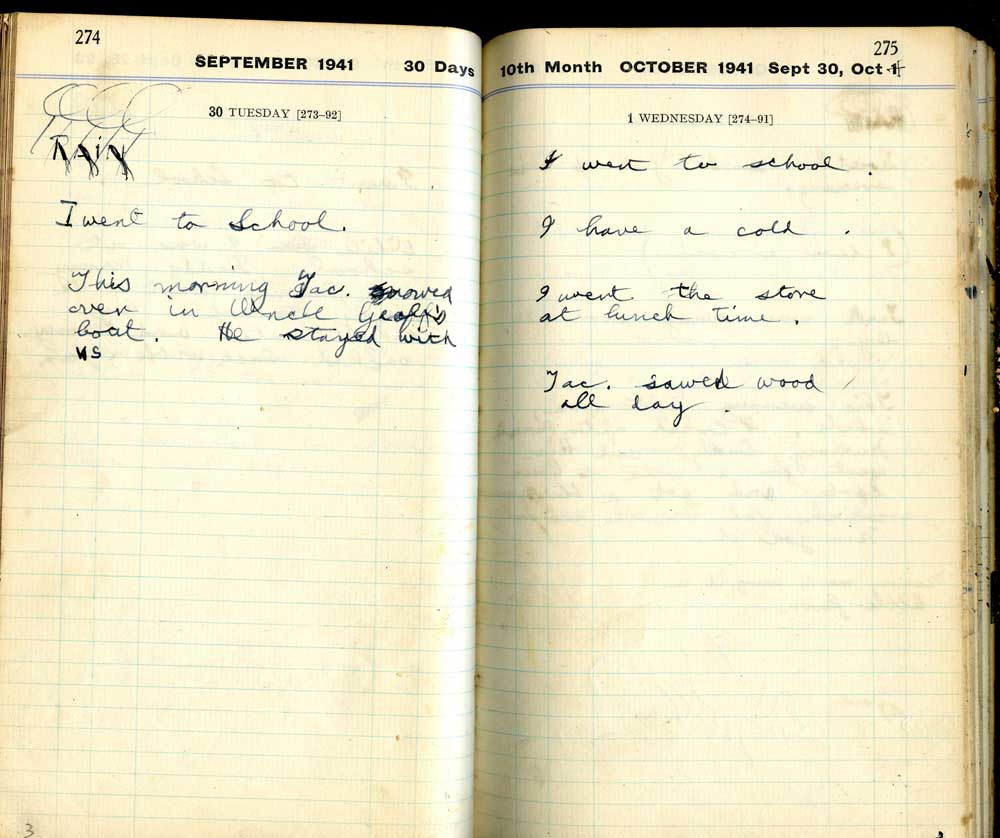 274
SEPTEMBER 1941 30 Days
30 TUESDAY [273–92]
RAIN
I went to School.
This morning Jac. rowed
over in Uncle Geoff's
boat. He stayed with
us
275
10th Month OCTOBER 1941 Sept 30, Oct 1
1 WEDNESDAY [274–91]
I went to school.
I have a cold.
I went the store
at lunch time.
Jac. sawed wood
all day.
3